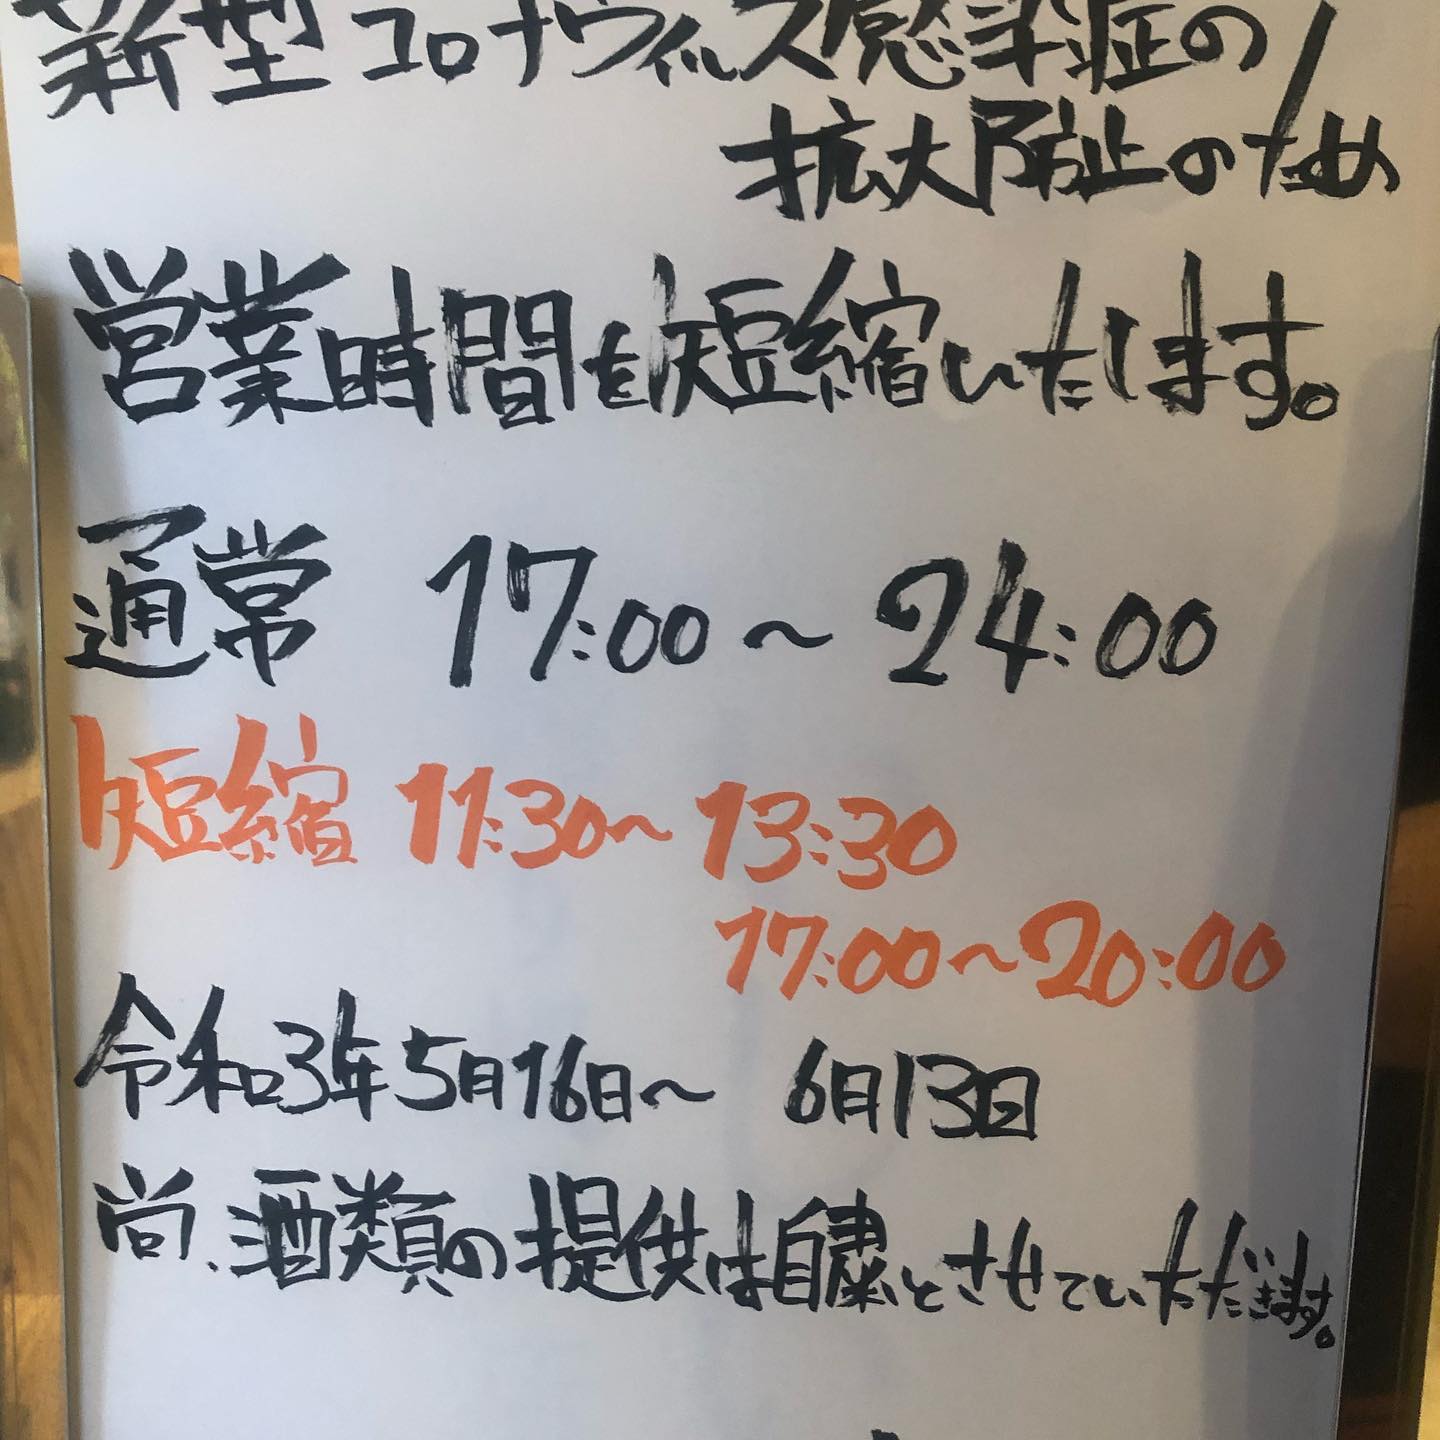 新型コロナウィルス感染症の
拡大防止のため
営業時間を短縮いたします。
通常 17:00〜24:00
短縮 11:30〜13:30
17:00〜20:00
令和3年5月16日〜 6月13日
尚、酒類の提供は自粛とさせていただきます。